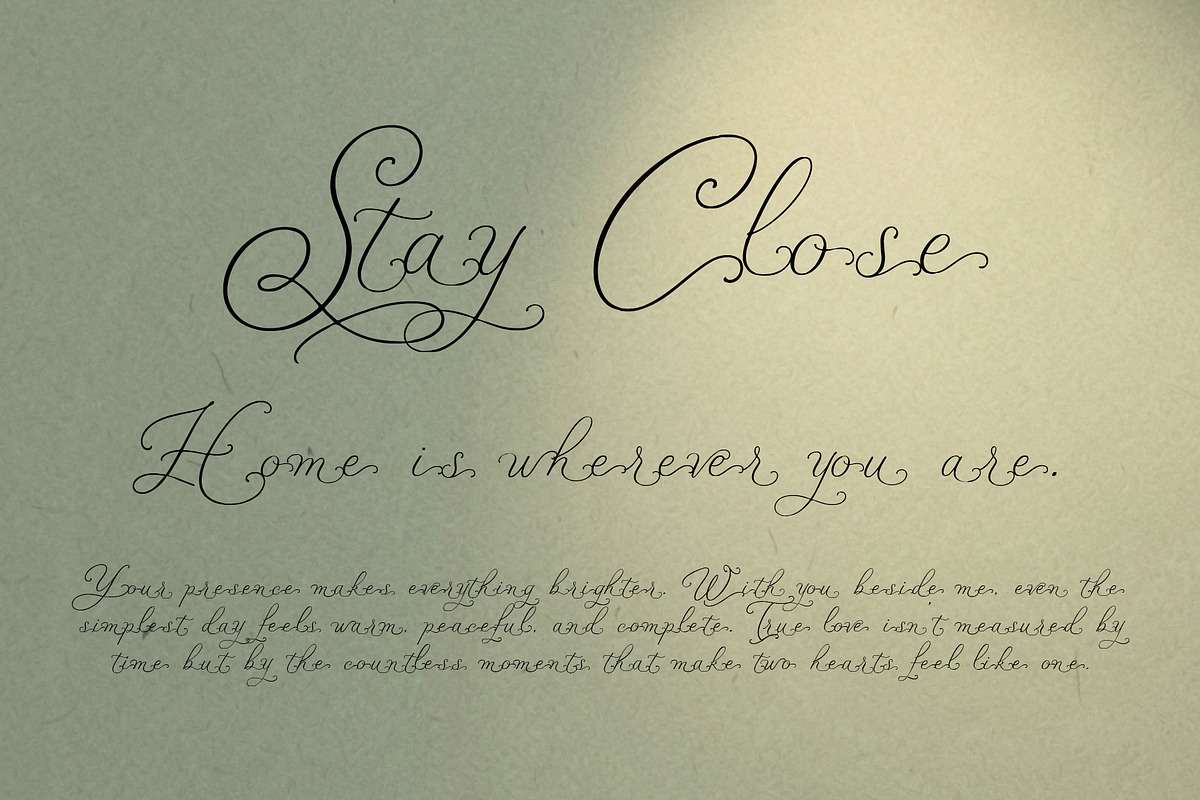 Stay Close
Home is wherever you are.
Your presence makes everything brighter. With you beside me, even the
simplest day feels warm, peaceful, and complete. True love isn't measured by
time but by the countless moments that make two hearts feel like one.